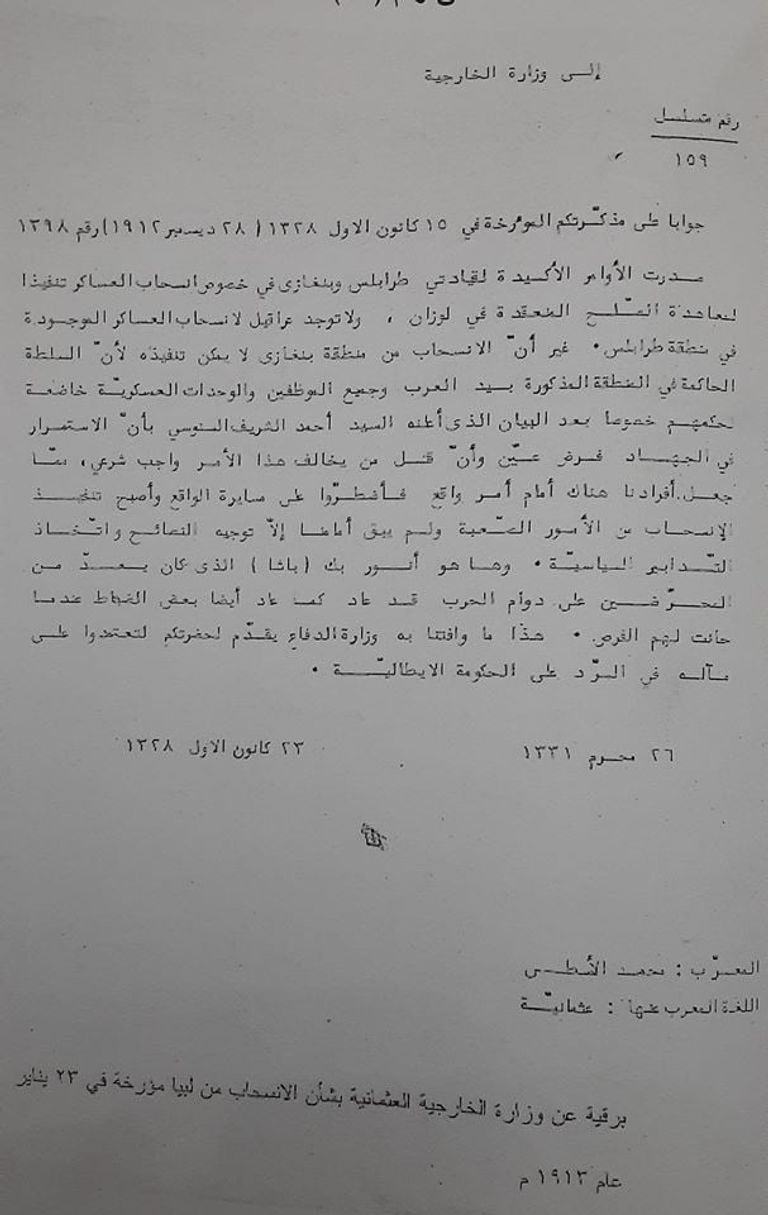 إلى وزارة الخارجية
رقم متسلسل
١٥٩
جوابا على مذكّرتكم المؤرخة في ١٥ كانون الاول ١٣٢٨ ( ٢٨ ديسمبر ١٩١٢) رقم ١٣٩٨
صدرت الأوامر الأكيدة لقيادتي طرابلس وبنغازى في خصوص انسحاب العساكر تنفيذا
لمعاهدة الصّلح المنعقدة في لوزان ، ولا توجد عراقيل لانسحاب العساكر الموجودة
في منطقة طرابلس . غير أنّ الانسحاب من منطقة بنغازى لا يمكن تنفيذه لأنّ السلطة
الحاكمة في المنطقة المذكورة بيد العرب وجميع الموظفين والوحدات العسكريّة خاضعة
لحكمهم خصوصا بعد البيان الذى أعلنه السيد أحمد الشريف السنوسي بأنّ الاستمرار
في الجهاد فرض عيّن وأنّ قتل من يخالف هذا الأمر واجب شرعي ، ممّا
جعل أفرادنا هناك أمام أمر واقع فأضطرّوا على مسايرة الواقع وأصبح تنفيذ
الإنسحاب من الأمور الصّعبة ولم يبق أمامنا إلاّ توجيه النصائح واتّخاذ
التّدابير السياسيّة . وها هو أنور بك (باشا) الذى كان يعدّ من
المحرّضين على دوام الحرب قد عاد كما عاد أيضا بعض الضباط عندما
حانت لهم الفرص . هذا ما وافتنا به وزارة الدفاع يقدّم لحضرتكم لتعتمدوا على
مآله في الرّد على الحكومة الايطاليّة .
٢٦ محرم ١٣٣١ ٢٣ كانون الاول ١٣٢٨
المعرّب : محمد الأسطى
اللغة المعرب عنها : عثمانيّة
برقية عن وزارة الخارجية العثمانية بشأن الانسحاب من لبيا مؤرخة في ٢٣ يناير
عام ١٩١٣ م